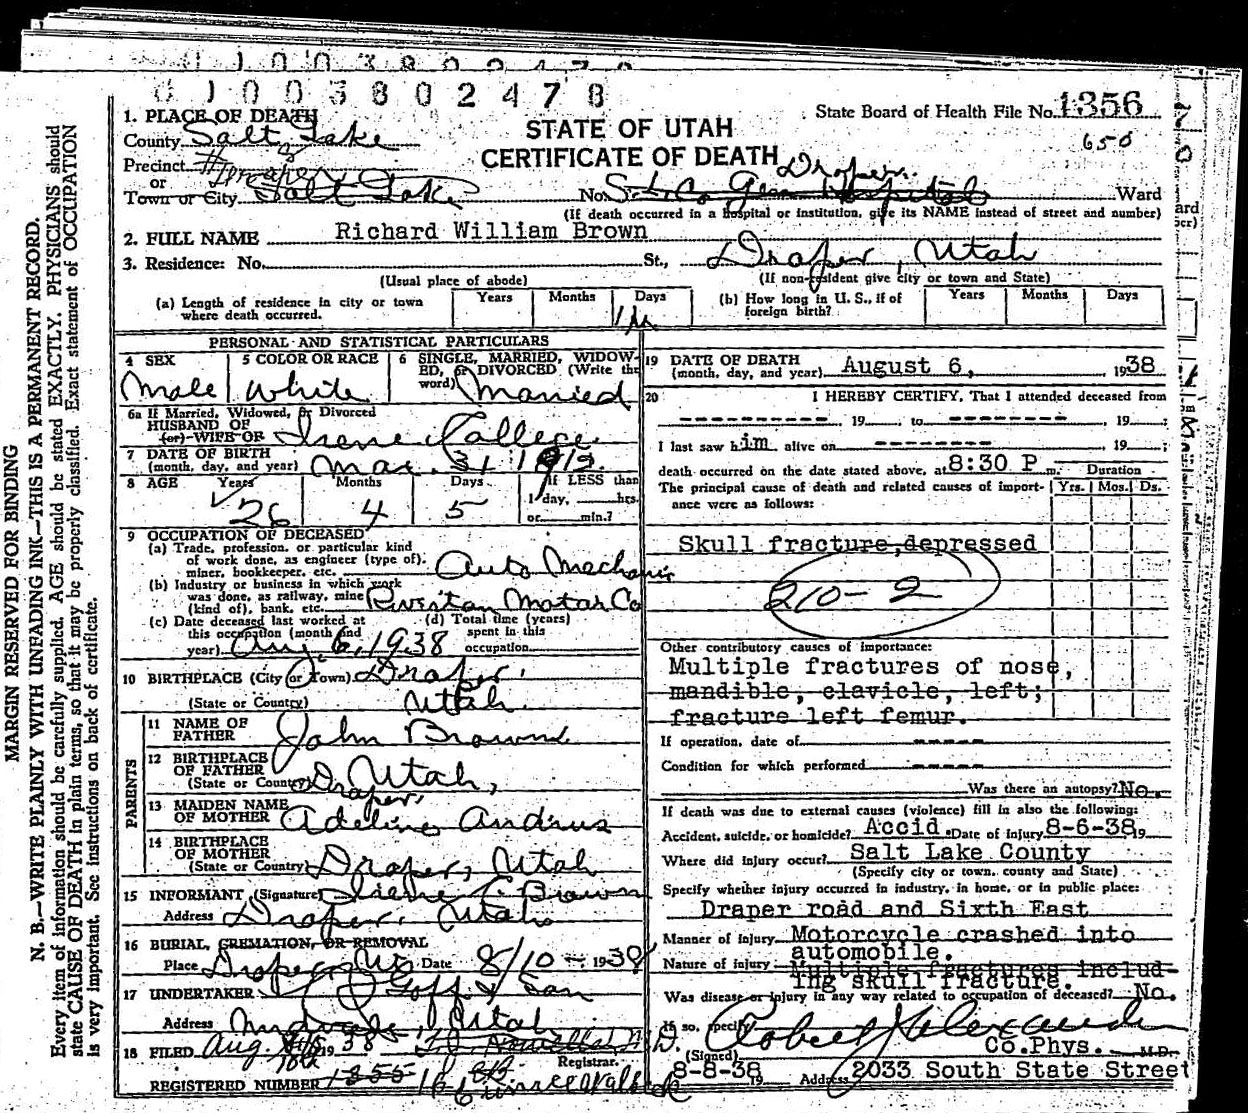 0 1 0 0 3 8 0 2 4 7 8
State Board of Health File No. 1356
650
STATE OF UTAH
CERTIFICATE OF DEATH
1. PLACE OF DEATH
County Salt Lake
Precinct #8 Draper
or
Town or City Salt Lake
Draper
No. S. L. Co Gen Hospital Ward
(If death occurred in a hospital or institution, give its NAME instead of street and number)
2. FULL NAME Richard William Brown
3. Residence: No. St., Draper, Utah
(Usual place of abode) (If non-resident give city or town and State)
(a) Length of residence in city or town where death occurred. Years Months Days
(b) How long in U. S., if of foreign birth? Years Months Days
PERSONAL AND STATISTICAL PARTICULARS
4 SEX Male
5 COLOR OR RACE White
6 SINGLE, MARRIED, WIDOWED, or DIVORCED (Write the word) Married
6a If Married, Widowed, or Divorced
HUSBAND OF
(or) WIFE OF Irene
7 DATE OF BIRTH
(month, day, and year) Mar. 31 1912
8 AGE Years 26 Months 4 Days 5 If LESS than 1 day, hrs. or min.?
9 OCCUPATION OF DECEASED
(a) Trade, profession, or particular kind of work done, as engineer (type of), miner, bookkeeper, etc. Auto Mechanic
(b) Industry or business in which work was done, as railway, mine (kind of), bank, etc. Riverton Motor Co
(c) Date deceased last worked at this occupation (month and year) Aug. 6, 1938
(d) Total time (years) spent in this occupation
10 BIRTHPLACE (City or Town) Draper,
(State or Country) Utah.
PARENTS
11 NAME OF FATHER John Brown
12 BIRTHPLACE OF FATHER
(State or Country) Draper, Utah,
13 MAIDEN NAME OF MOTHER Adeline Andrus
14 BIRTHPLACE OF MOTHER
(State or Country) Draper, Utah
15 INFORMANT (Signature) Irene C. Brown
Address Draper, Utah
16 BURIAL, CREMATION, OR REMOVAL
Place Draper Ut Date 8/10 - 1938
17 UNDERTAKER Goff & Son
Address Midvale, Utah
18 FILED Aug. 1938
Registrar.
REGISTERED NUMBER 1355
19 DATE OF DEATH
(month, day, and year) August 6, 1938
20 I HEREBY CERTIFY, That I attended deceased from
---------- 19 , to ---------- , 19 ;
I last saw him alive on ---------- 19 ;
death occurred on the date stated above, at 8:30 P m. Duration
The principal cause of death and related causes of importance were as follows: Yrs. Mos. Ds.
Skull fracture, depressed
210-2
Other contributory causes of importance:
Multiple fractures of nose,
mandible, clavicle, left;
fracture left femur.
If operation, date of -----
Condition for which performed -----
Was there an autopsy? No.
If death was due to external causes (violence) fill in also the following:
Accident, suicide, or homicide? Accid. Date of injury 8-6-38 19
Where did injury occur? Salt Lake County
(Specify city or town, county and State)
Specify whether injury occurred in industry, in home, or in public place:
Draper road and Sixth East
Manner of injury Motorcycle crashed into
automobile.
Nature of injury Multiple fractures includ-
ing skull fracture.
Was disease or injury in any way related to occupation of deceased? No.
If so, specify
(Signed) Robert J. Alexander
Co.Phys. M.D.
8-8-38 19 Address 2033 South State Street
MARGIN RESERVED FOR BINDING
N. B.—WRITE PLAINLY WITH UNFADING INK—THIS IS A PERMANENT RECORD.
Every item of information should be carefully supplied. AGE should be stated EXACTLY. PHYSICIANS should
state CAUSE OF DEATH in plain terms, so that it may be properly classified. Exact statement of OCCUPATION
is very important. See instructions on back of certificate.